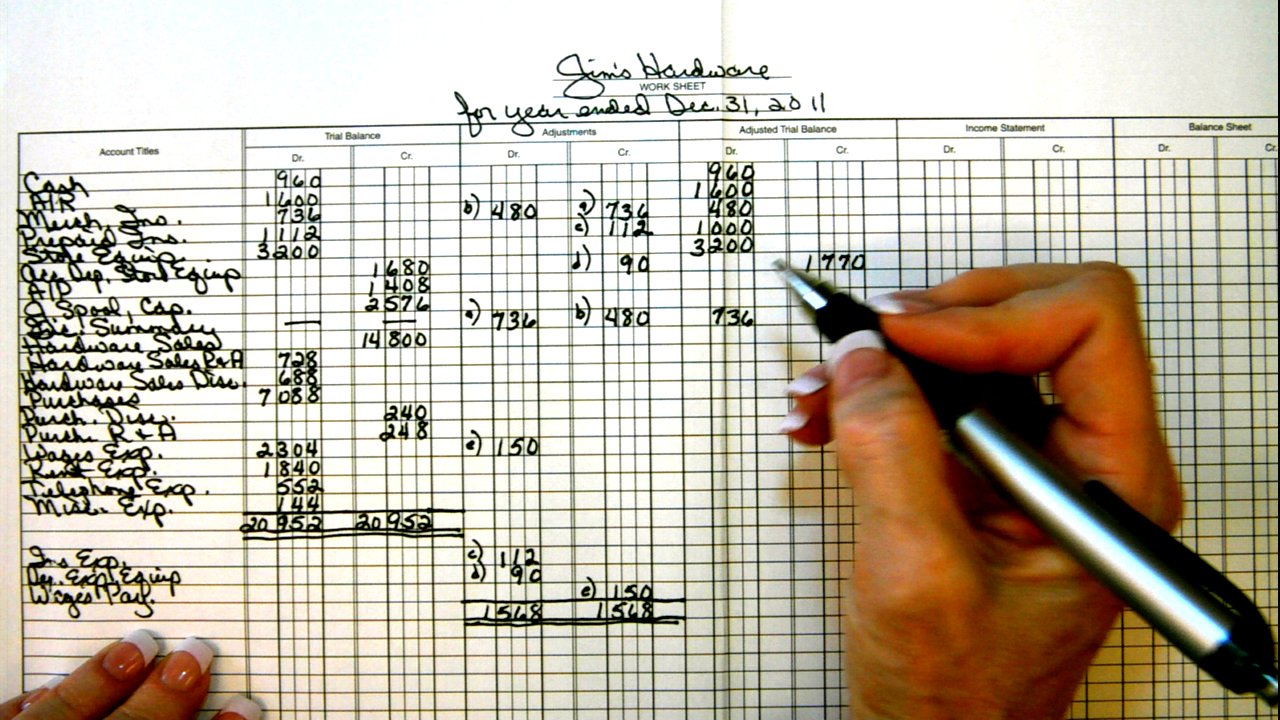 Jim's Hardware
WORK SHEET
for year ended Dec. 31, 2011
Account Titles Trial Balance Adjustments Adjusted Trial Balance Income Statement Balance Sheet
Dr. Cr. Dr. Cr. Dr. Cr. Dr. Cr. Dr. Cr.
Cash 960 960
A/R 1600 1600
Merch. Inv. 736 b) 480 a) 736 480
Prepaid Ins. 1112 c) 112 1000
Store Equip. 3200 3200
Acc. Dep. Store Equip 1680 d) 90 1770
A/P 1408
J. Spool, Cap. 2576
Inc. Summary — — a) 736 b) 480 736
Hardware Sales 14800
Hardware Sales R+A 728
Hardware Sales Disc. 688
Purchases 7088
Purch. Disc. 240
Purch. R+A 248
Wages Exp. 2304 e) 150
Rent Exp. 1840
Telephone Exp. 552
Misc. Exp. 144
20952 20952
Ins. Exp. c) 112
Dep. Exp. Equip d) 90
Wages Pay. e) 150
1568 1568